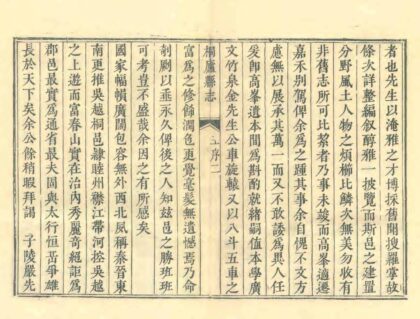 者也先生以淹雅之才博採舊聞搜羅掌故
條次詳整編叙醇雅一披覽而斯邑之建置
分野風土人物之煩櫛比鱗次無美勿收有
非舊志所可比絜者乃事未竣而高癸遄遷
嘉禾別駕俾余爲之踵其事余自愧不文方
慮無以展承其萬一而又不敢諉爲異人任
爰即高癸遺本間爲斟酌就緒嗣値本學廣
文竹泉金先生公車旋轅又以八斗五車之
桐廬縣志
序二
富爲之修餙潤色更覺毫髮無遺憾焉乃命
剞劂以垂永久俾後之人知茲邑之勝班班
可考豈不盛哉余因之有所感矣
國家幅幀廣闊包容無外西北風稱秦晉東
南更推吳越桐邑隷睦州襟江帶河控吳越
之上遊而富春山實在治內秀麗奇絕詎爲
郡邑最實爲通省最夫固與太行恒岳爭雄
長於天下矣余公餘稍暇拜謁 子陵嚴先